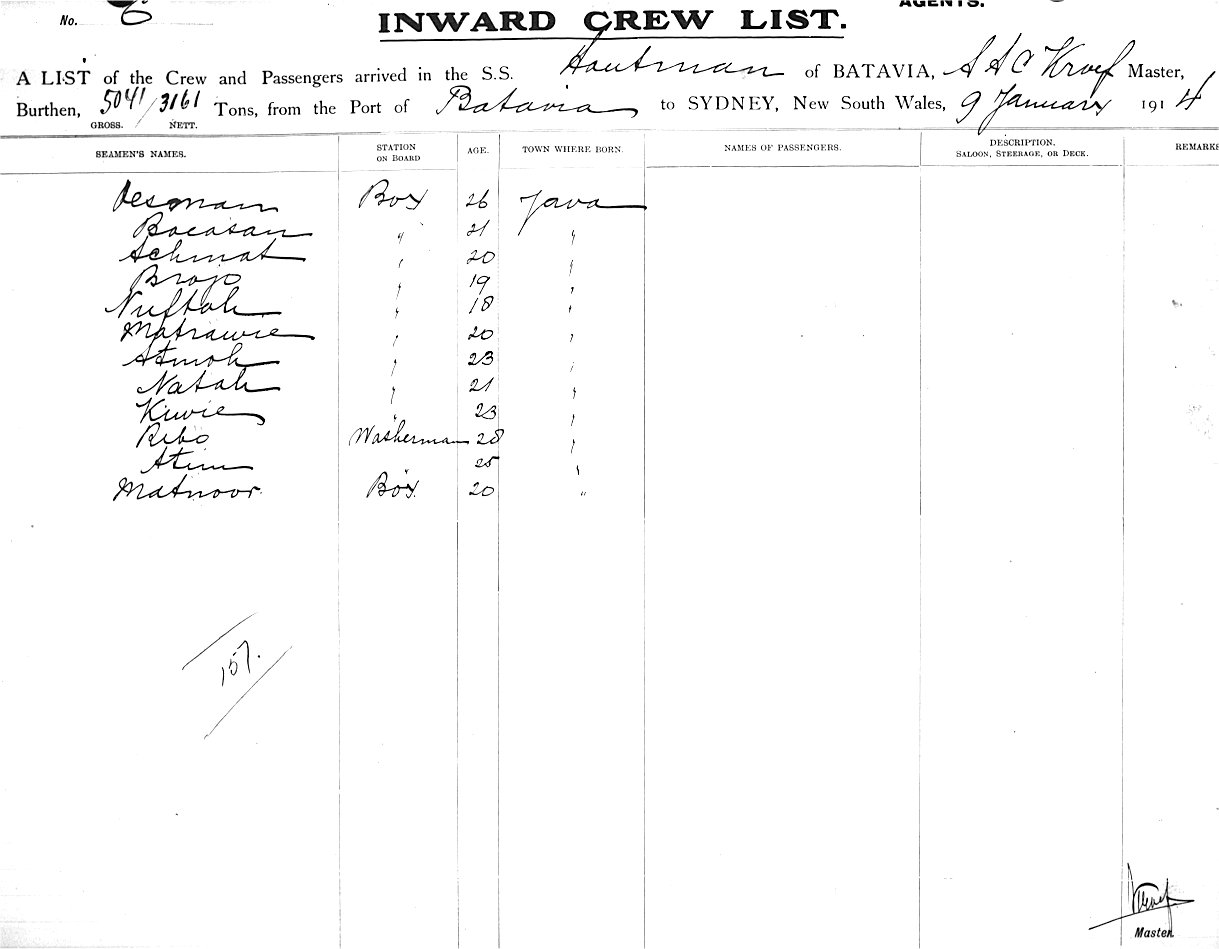 AGENTS.
No. 6
INWARD CREW LIST.
A LIST of the Crew and Passengers arrived in the S.S. Houtman of BATAVIA, A A C Kroef Master,
Burthen, 5041/3161 Tons, from the Port of Batavia to SYDNEY, New South Wales, 9 January 1914
GROSS. NETT.
SEAMEN'S NAMES. STATION ON BOARD AGE. TOWN WHERE BORN. NAMES OF PASSENGERS. DESCRIPTION. SALOON, STEERAGE, OR DECK. REMARKS
Oesman Boy 26 Java
Bacasan " 21 "
Achmat " 20 "
Brojo " 19 "
Nuftah " 18 "
Matrawie " 20 "
Atmoh " 23 "
Natah " 21 "
Kiwie " 23 "
Ribo Washerman 28 "
Atim " 25 "
Matnoor Boy 20 "
157.
Kroef
Master.